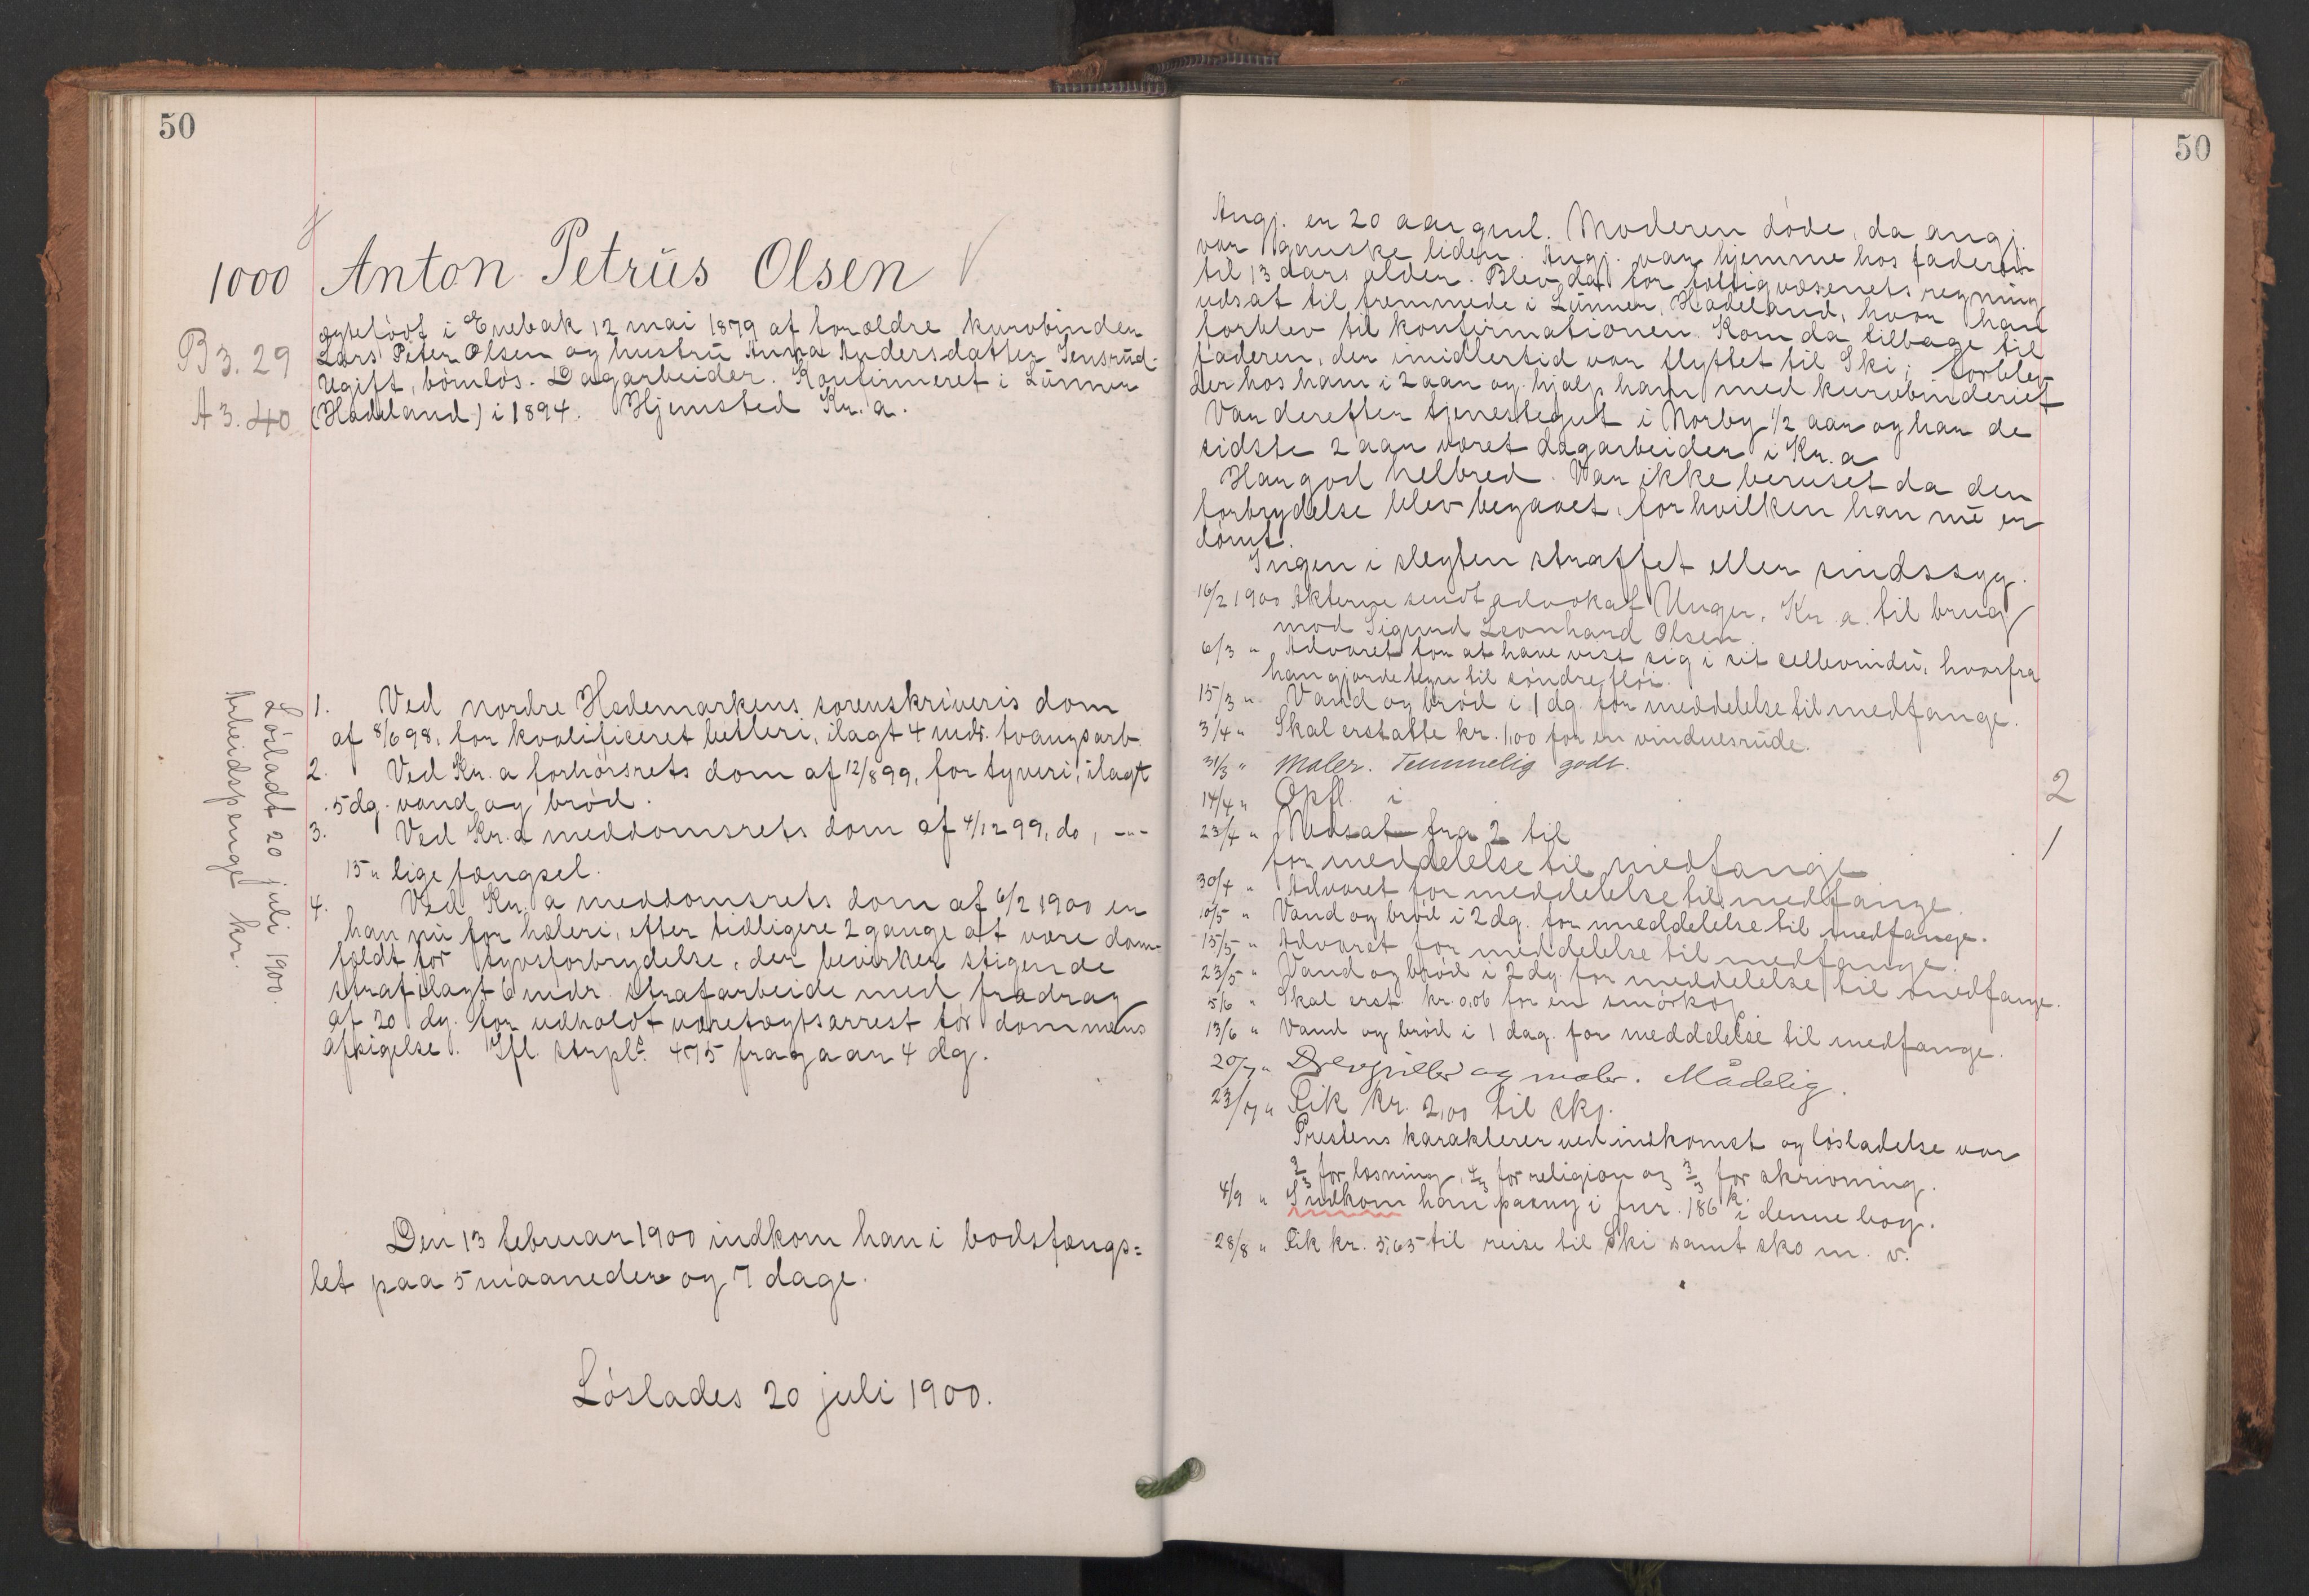 50
1000 Anton Petrus Olsen
B 3. 29
A 3. 40
ægtefödt i Enebak 12 mai 1879 af forældre kurvbinder
Lars Peter Olsen og hustru Anna Andersdatter Jensrud.
Ugift, börnlös. Dagarbeider. Konfirmeret i Lunner
(Hadeland) i 1894. Hjemsted Kr.a.
1. Ved nordre Hedemarkens sorenskriveris dom
af 8/6 98, for kvalificeret betleri, ilagt 4 mdr. tvangsarb.
2. Ved Kr.a forhörsrets dom af 12/8 99, for tyveri, ilagt
5 dg. vand og bröd.
3. Ved Kr.a meddomsrets dom af 4/12 99, do, -"-
15 " lige fængsel.
4. Ved Kr.a meddomsrets dom af 6/2 1900 er
han nu for hæleri, efter tidligere 2 gange at være dom-
fældt for tyvsforbrydelse, der bevirker stigende
straf ilagt 6 mdr. strafarbeide med fradrag
af 20 dg. for udholdt varetægtsarrest för dommens
afsigelse. Ifl. strpl. § 475 fragaar 4 dg.
Lösladt 20 juli 1900.
Arbeidspenge kr.
Den 13 februar 1900 indkom han i bodsfængs=
let paa 5 maaneder og 7 dage.
Löslades 20 juli 1900.
50
Angj. er 20 aar gml. Moderen döde, da angj.
var ganske liden. Angj. var hjemme hos faderen
til 13 aars alder. Blev da for fattigvæsenets regning
udsat til fremmede i Lunner, Hadeland, hvor han
forblev til konfirmationen. Kom da tilbage til
faderen, der imidlertid var flyttet til Ski, forblev
der hos ham i 2 aar og hjalp ham med kurvbinderiet
Var derefter tjenestegut i Norby 1/2 aar og har de
sidste 2 aar været dagarbeider i Kr.a
Har god helbred. Var ikke beruset da den
forbrydelse blev begaaet, for hvilken han nu er
dömt.
Ingen i slegten straffet eller sindssyg.
16/2 1900 Akterne sendt advokat Unger, Kr.a. til brug
mod Sigurd Leonhard Olsen.
6/3 " Advaret for at have vist sig i sit cellevindu, hvorfra
han gjorde tegn til söndre flöi.
15/3 " Vand og bröd i 1 dg. for meddelelse til medfange.
3/4 " Skal erstatte kr. 1,00 for en vinduesrude.
31/3 " Maler. Temmelig godt.
14/4 " Opfl. i 2
23/4 " Nedsat fra 2 til 1
for meddelelse til medfange
30/4 " Advaret for meddelelse til medfange.
10/5 " Vand og bröd i 2 dg. for meddelelse til medfange.
15/5 " Advaret for meddelelse til medfange.
23/5 " Vand og bröd i 2 dg. for meddelelse til medfange.
5/6 " Skal erst. kr. 0,06 for en smörkop.
13/6 " Vand og bröd i 1 dag. for meddelelse til medfange.
20/7 " og maler. Mådelig.
23/7 " Fik kr. 2,00 til sko.
Prestens karakterer ved indkomst og lösladelse var
for læsning, for religion og 3/3 for skrivning.
4/9 " Indkom han paany i Jnr. 186 i denne bog.
28/8 " Fik kr. 5,65 til reise til Ski samt sko m. v.